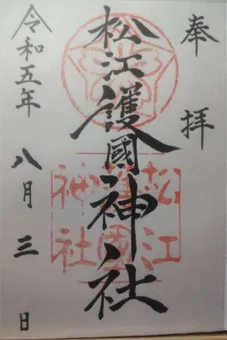 奉拝
松江護國神社
松江護國神社
令和五年八月三日